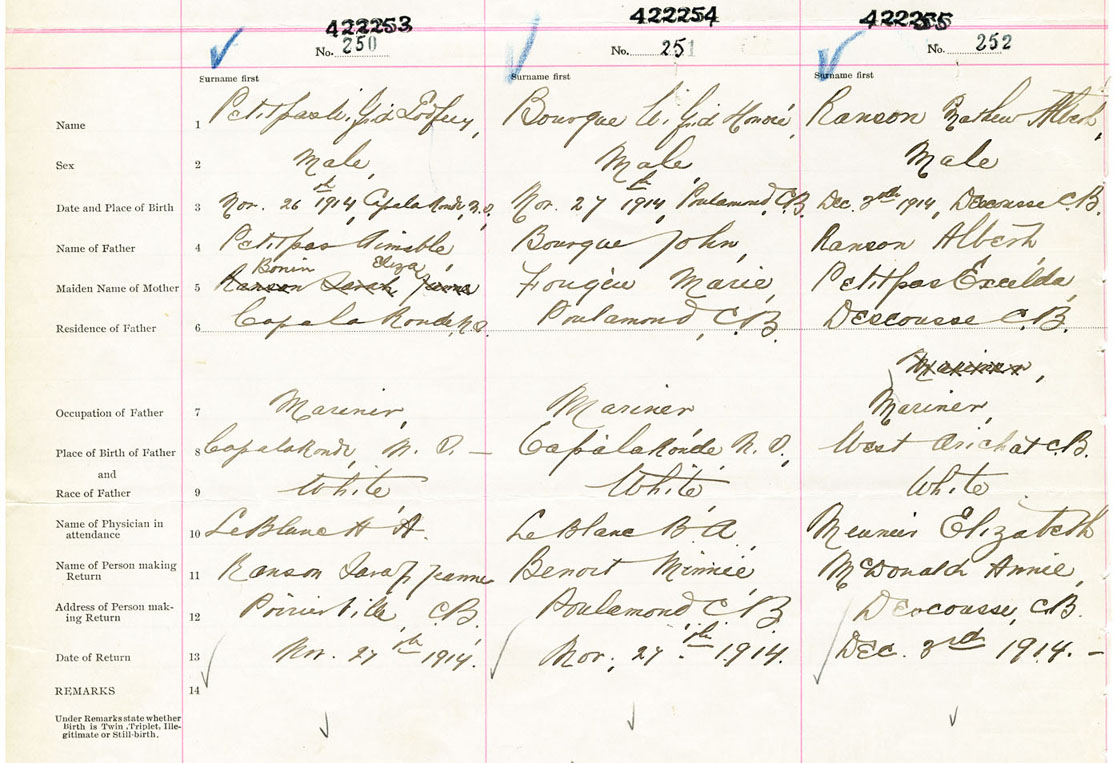 422253 422254 422255
No. 250 No. 251 No. 252
Surname first Surname first Surname first
Name 1 Petitpas Wilfrid Godfrey, Bourque Wilfrid Honoré, Ranson Mathew Albert,
Sex 2 Male, Male, Male
Date and Place of Birth 3 Nov. 26th 1914, Capalaronde, N.S. Nov. 27th 1914, Poulamond, C.B. Dec. 3rd 1914, Descousse C.B.
Name of Father 4 Petitpas Aimable Bourque John, Ranson Albert
Bonin Eliza
Maiden Name of Mother 5 Ranson Sarah Jeanne Fougère Marie, Petitpas Exeilda,
Residence of Father 6 Capalaronde, N.S. Poulamond, C.B. Descousse C.B.
Mariner,
Occupation of Father 7 Mariner, Mariner, Mariner,
Place of Birth of Father 8 Capalaronde, N.S. — Capalaronde N.S, West Arichat C.B.
and
Race of Father 9 White White White
Name of Physician in
attendance 10 LeBlanc H A. LeBlanc B A Meunier Elizabeth
Name of Person making
Return 11 Ranson Sarah Jeanne Benoit Minnie McDonald Annie,
Address of Person mak-
ing Return 12 Poirierville, C.B. Poulamond C.B. Descousse, C.B.
Date of Return 13 Nov. 27th 1914. Nov. 27th 1914. Dec. 3rd 1914. —
REMARKS 14
Under Remarks state whether
Birth is Twin, Triplet, Ille-
gitimate or Still-birth.